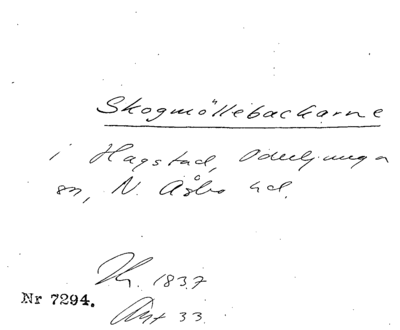 Skogmöllebackarne
i Hagstad, Oderljunga
sn, N. Åsbo hd.
1837
Nr 7294.
Akt 33.